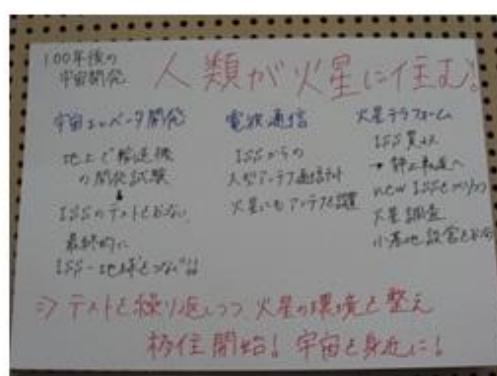 100年後の
宇宙開発
人類が火星に住む。
宇宙エレベータ開発
地上で輸送機
の開発試験
ISSのテストをおこない
最終的に
ISS-地球をつなぐ
電波通信
ISSからの
大型アンテナ通信
火星にもアンテナを設置
火星テラフォーム
ISS
→静止軌道へ
new ISSをつくりつつ
火星調査
小基地設営をおこ
⇒テストを繰り返しつつ 火星の環境を整え
移住開始! 宇宙を身近に!